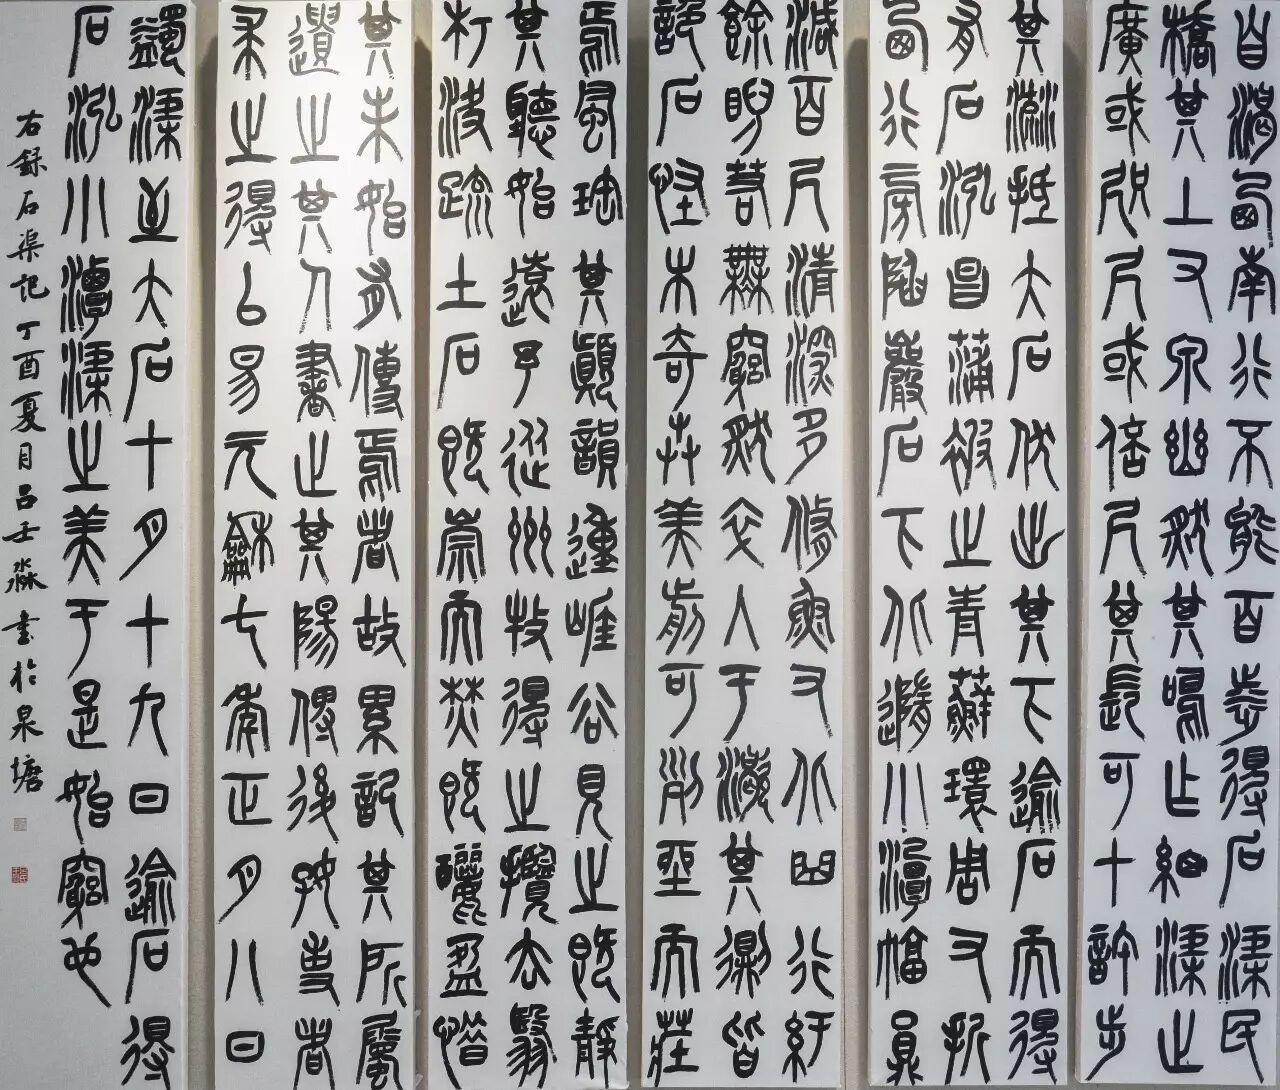 自渴西南行不能百步得石渠民
橋其上又泉幽然其鳴乍細渠之
廣或咫尺或倍尺其長可十許步
其流抵大石伏出其下逾石而得
有石泓昌蒲被之青蘚環周又折
西行旁陷巖石下北墮小潭幅員
減百尺清深多鯈魚又北曲行紆
餘睨若無窮然卒入于渴其側皆
詭石怪木奇卉美箭可列坐而庥
焉風搖其顛韻動崖谷見之既靜
其聽始遠予從州牧得之攬去翳
朽決疏土石既崇而焚既釃盈惜
其未始有傳焉者故累記其所屬
遺之其人書之其陽俾後好事者
求之得以易元和七年正月八日
蠲渠至大石十月十九日逾石得
石泓小潭渠之美于是始窮也
右錄石渠記丁酉夏月呂壬淼書於泉塘